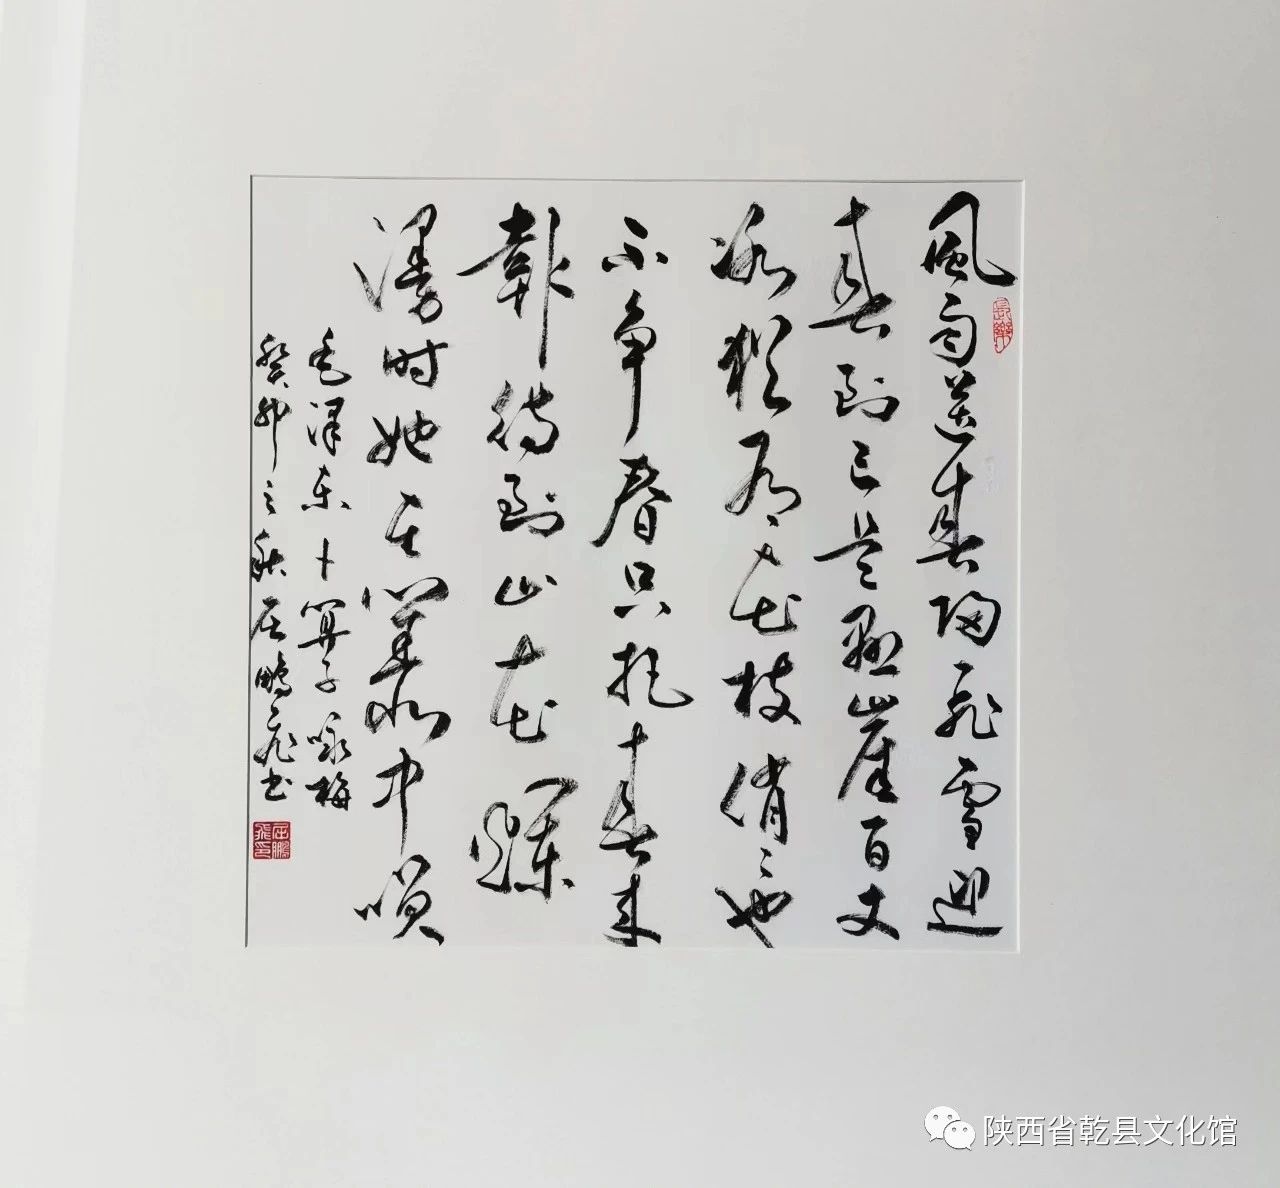 風雨送春歸飛雪迎
春到已是懸崖百丈
冰猶有花枝俏〻也
不争春只把春来
報待到山花爛
漫时她在叢中咲
毛澤东卜算子咏梅
癸卯之秋屈鵬飛书
长樂
屈鵬飛印
陕西省乾县文化馆